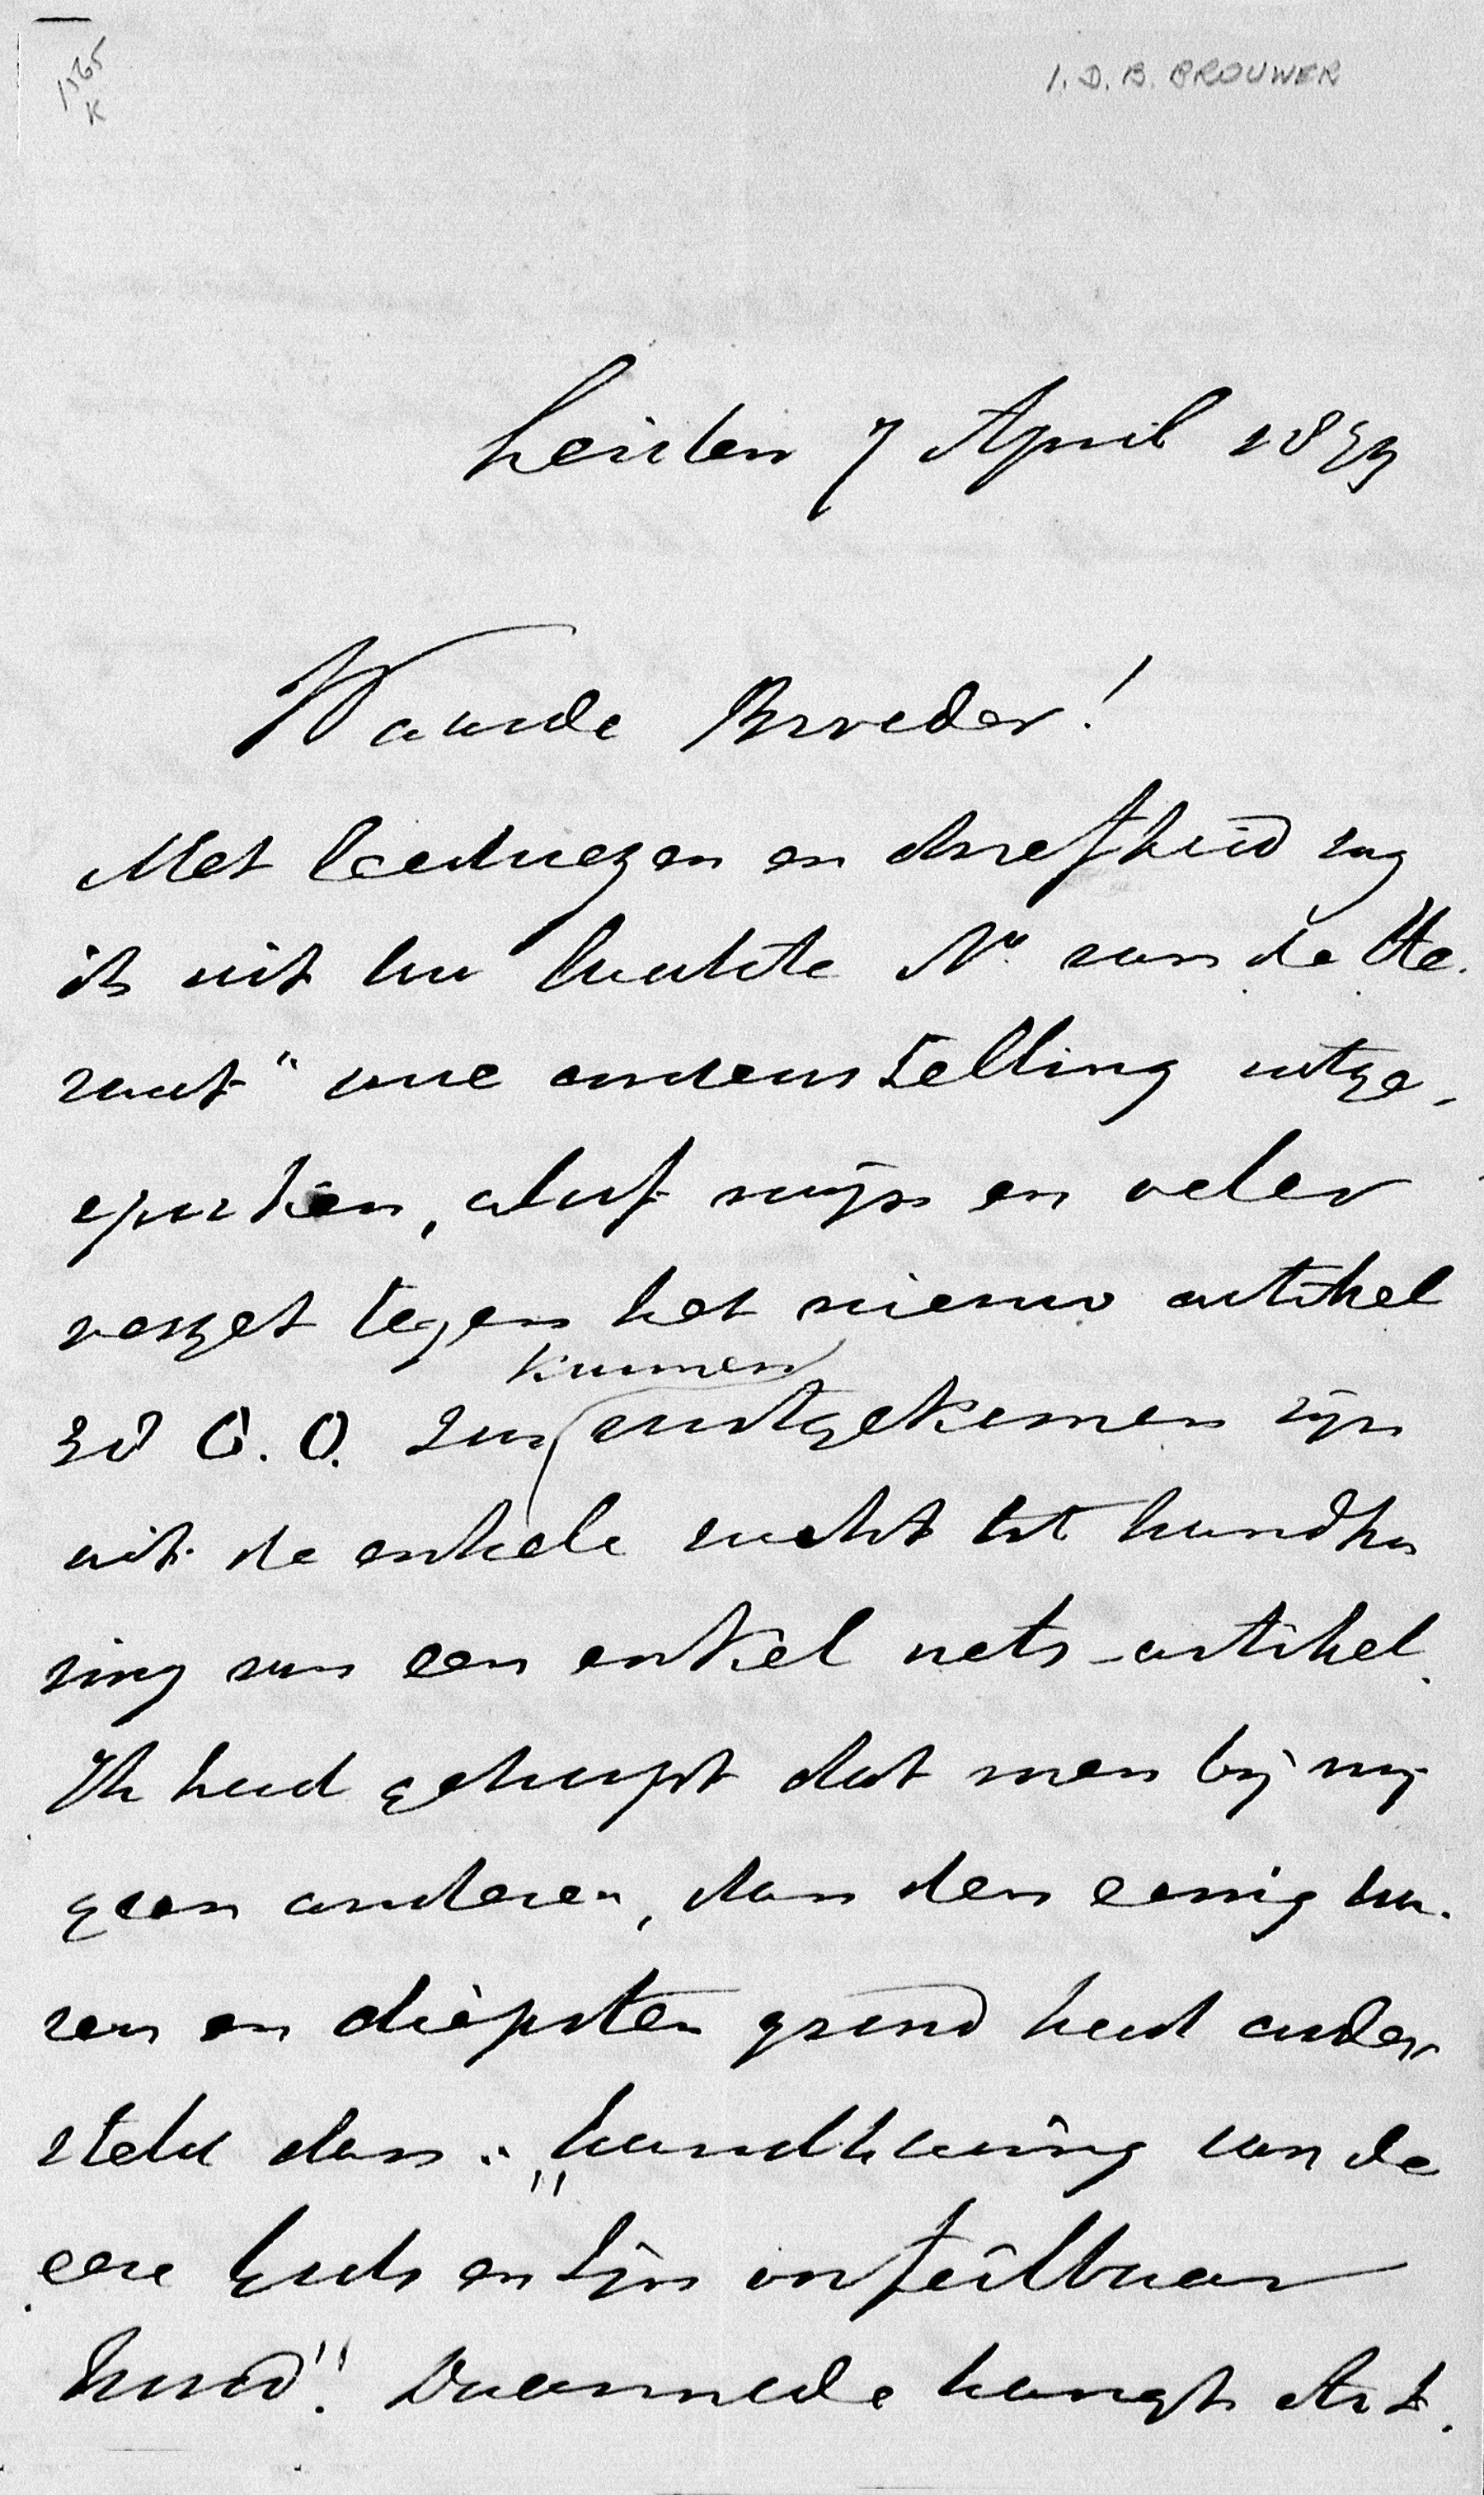 1365
K
I. D. B. BROUWER
Leiden 7 April 1879
Waarde Broeder!
Met leedwezen en droefheid zag
ik uit Uw laatste No. van de He-
raut" uwe onderstelling uitge-
sproken, alsof mijn en veler
verzet tegen het nieuw artikel
38 C. O. zou kunnen voortgekomen zijn
uit de enkele zucht tot handha
ving van een enkel wets-artikel.
Ik had gehoopt dat men bij mij
geen anderen, dan den eenig wa-
ren en diepsten grond had onder
steld dan: "handhaving van de
eere Gods en Zijn onfeilbaar
Woord"! Daarmede hangt Art.